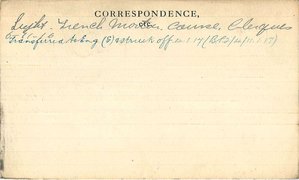 CORRESPONDENCE.
Light. Trench Mortar. Course. Clerques
Transferred to bng (8) & struck off 4.1.17 (B213/4/11.1.17)